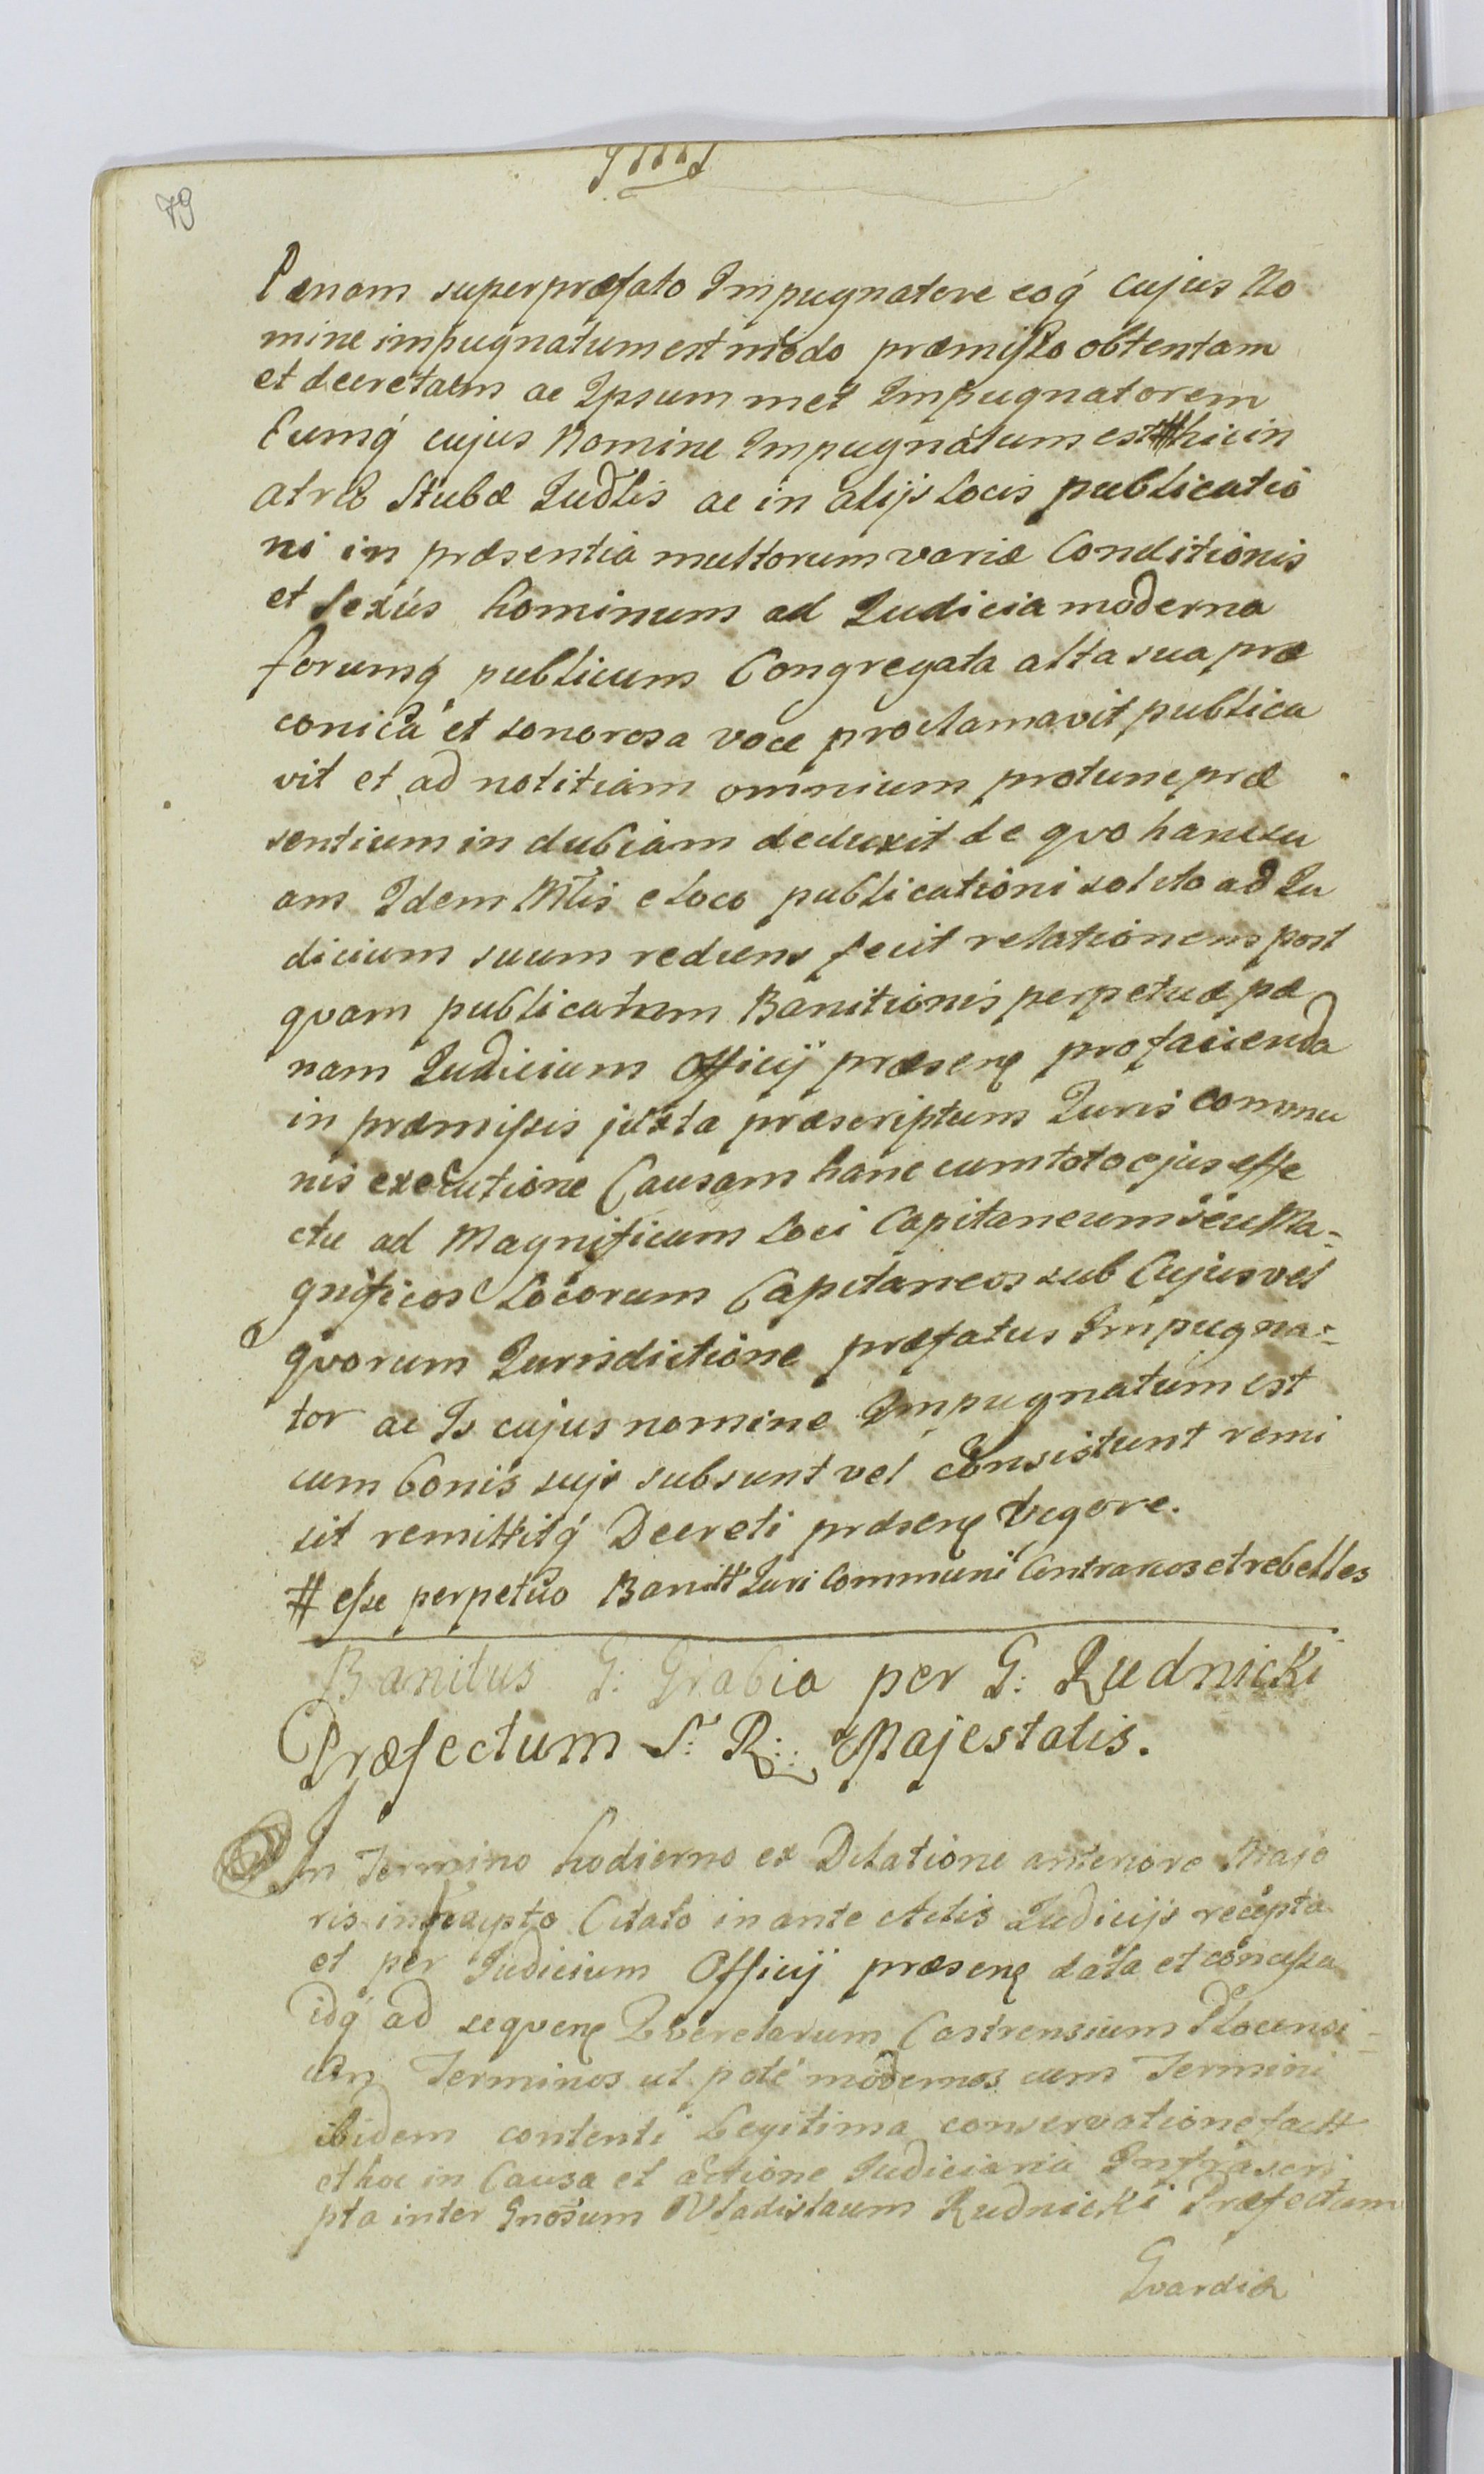 79
Pænam superpræfato Impugnatore eoq́ cujus No
mine impugnatum est modo præmisso obtentam
et decretam ac Ipsummet Impugnatorem
Eumq́ cujus Nomine Impugnatum est # hic in
atrio Stubæ Judlis ac in alijs locis publicatio
ni in præsentia multorum variæ Conditionis
et Sexús hominum ad Judicia moderna
forumq́ publicum Congregata alta sua præ
conica et sonorosa voce proclamavit publica
vit et ad notitiam omnium protunc præ
sentium indubiam deduxit de qvo hanc su
am Idem Mtis e loco publicationi solito ad Ju
dicium suum rediens fecit relationem post
qvam publicatam Banitionis perpetuæ pæ
nam Judicium Officij præsens pro facienda
in præmissis juxta præscriptum Juris commu
nis executione Causam hanc cum toto ejus effe
ctu ad Magnificum loci Capitaneum seu Ma-
gnificos Locorum Capitaneos sub Cujus vel
qvorum Jurisdictione præfatus Impugna-
tor ac Is cujus nomine Impugnatum est
cum bonis sujs subsunt vel consistunt remi
sit remittitq́ Decreti præsens vigore.
# esse perpetuo Banitt Juri Communi Contrarios et rebelles
Banitus G: Grabia per G: Rudnicki
Præfectum S: R: Majestatis.
In Termino hodierno ex Dilatione anteriore Majo
ris Citato in ante Actis Judicijs recepta
et per Judicium Officij præsens data et concessa
idq́ ad seqvens Qverelarum Castrensium Plocensi-
um Terminos ut pote modernos cum Termini
ibidem contenti Legitima conservatione factt
et hoc in Causa et actione Judiciaria Infrascri
pta inter Gnosum Vladislaum Rudnicki Præfectum
Gvardiæ